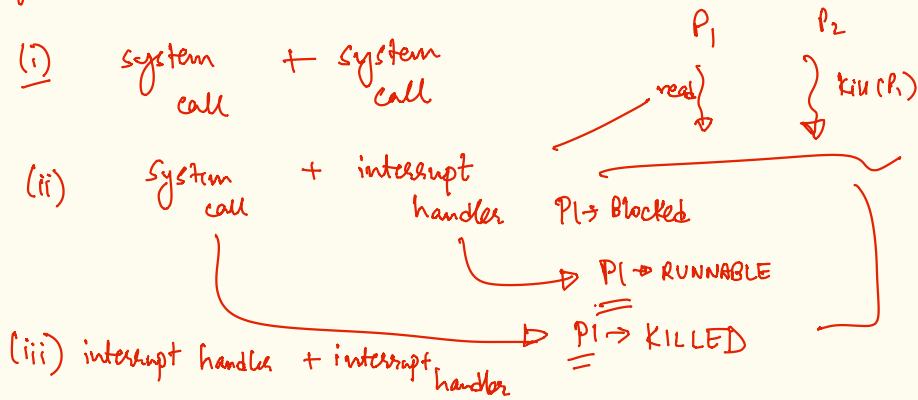 P1 P2
(i) system call + system call
read kill (P1)
(ii) system call + interrupt handler
P1 → Blocked
P1 → RUNNABLE
P1 → KILLED
(iii) interrupt handler + interrupt handler